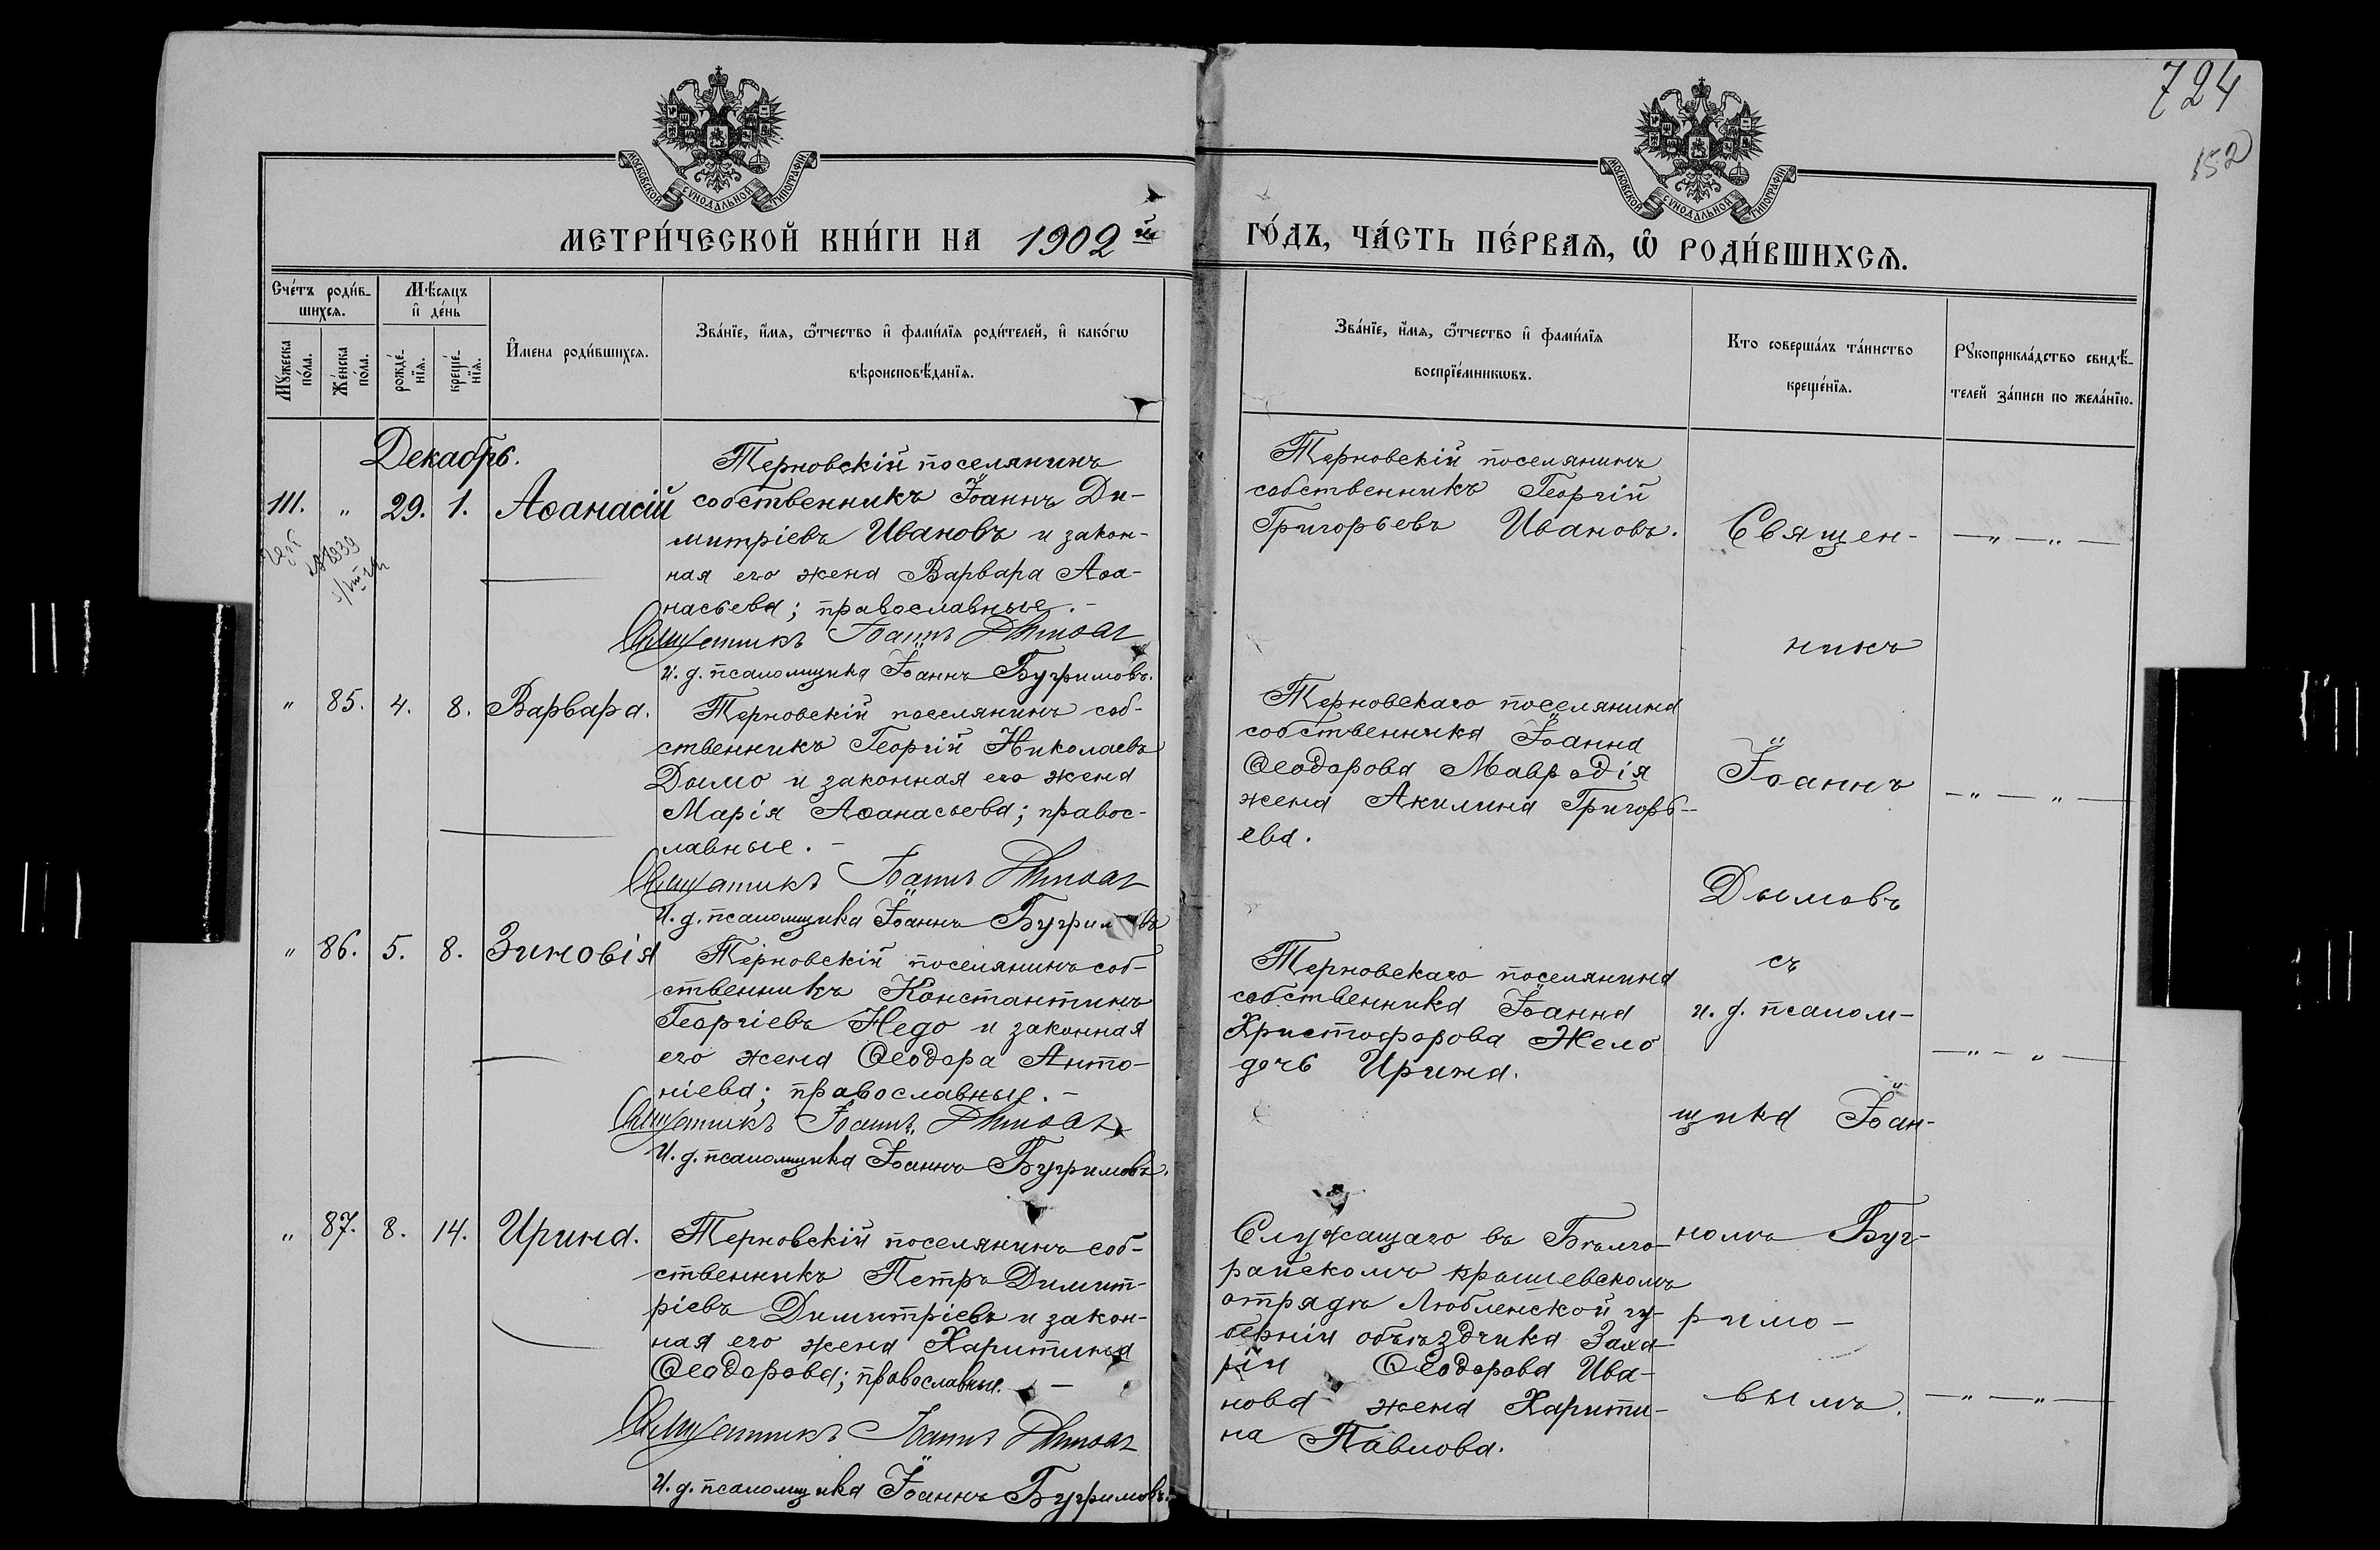 724
152
МОСКОВСКОЙ СѴНОДАЛЬНОЙ ТИПОГРАФІИ
МОСКОВСКОЙ СѴНОДАЛЬНОЙ ТИПОГРАФІИ
МЕТРИ́ЧЕСКОЙ КНИ́ГИ НА 1902й
ГО́ДЪ, ЧА́СТЬ ПЕ́РВАЯ, Ѡ РОДИ́ВШИХСЯ.
Сче́тъ роди́в-
шихся.
Мꙋ́жеска по́ла.
Же́нска по́ла.
Мѣ́сяцъ
и҆ де́нь
рожде́-нїя.
креще́-нїя.
И҆мена роди́вшихся.
Зва́нїе, и҆́мя, ѻ҆́тчество и҆ фами́лїя роди́телей, и҆ како́гѡ
вѣроисповѣ́данїя.
Зва́нїе, и҆́мя, ѻ҆́тчество и҆ фами́лїя
воспрїе́мникѡвъ.
Кто соверша́лъ та́инство
креще́нїя.
Рꙋкоприкла́дство свидѣ́-
телей за́писи по жела́нїю.
Декабрь.
111. „ 29. 1. Аѳанасій
Терновскій поселянинъ
собственникъ Іоаннъ Ди-
митріевъ Ивановъ и закон-
ная его жена Варвара Аѳа-
насьева; православные. -
Священникъ Іоаннъ Дымовъ
и. д. псаломщика Іоаннъ Бугримовъ.
Терновскій поселянинъ
собственникъ Георгій
Григорьевъ Ивановъ.
„ 85. 4. 8. Варвара.
Терновскій поселянинъ соб-
ственникъ Георгій Николаевъ
Дымо и законная его жена
Марія Аѳанасьева; правос-
лавные. -
Священникъ Іоаннъ Дымовъ
И. д. псаломщика Іоаннъ Бугримовъ
Терновскаго поселянина
собственника Іоанна
Ѳеодорова Мавродія
жена Акилина Григорь-
ева.
„ 86. 5. 8. Зиновія
Терновскій поселянинъ соб-
ственникъ Константинъ
Георгіевъ Недо и законная
его жена Ѳеодора Анто-
ніева; православные. -
Священникъ Іоаннъ Дымовъ
И. д. псаломщика Іоаннъ Бугримовъ.
Терновскаго поселянина
собственника Іоанна
Христофорова Жело
дочь Ирина.
„ 87. 8. 14. Ирина.
Терновскій поселянинъ соб-
ственникъ Петръ Димит-
ріевъ Димитріевъ и закон-
ная его жена Харитина
Ѳеодорова; православные. -
Священникъ Іоаннъ Дымовъ
И. д. псаломщика Іоаннъ Бугримовъ.
Служащаго въ Бѣлго-
райскомъ
отрядѣ Люблинской гу-
берніи объѣздчика Заха-
рія Ѳеодорова Ива-
нова жена Харити-
на Павлова.
Священ-
никъ
Іоаннъ
Дымовъ
съ
и. д. псалом-
щика Іоан-
номъ Буг-
римо-
вымъ.